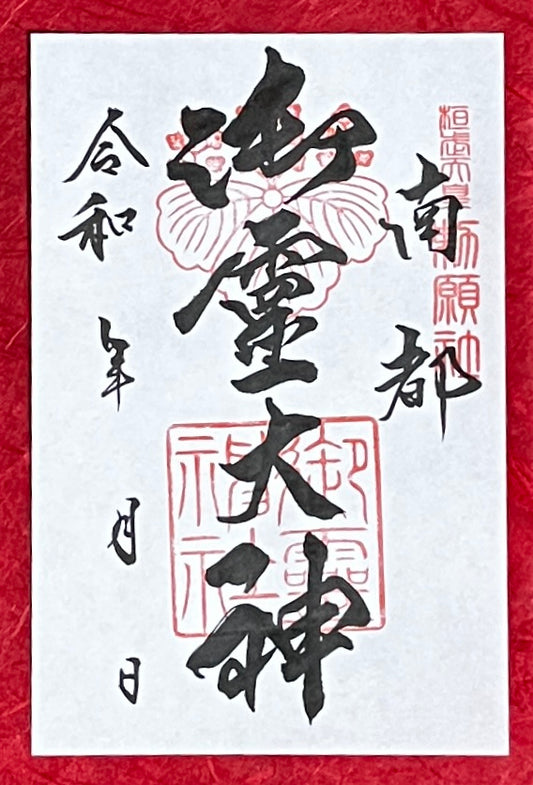 桓武天皇勅願社
南都
御霊大神
御霊神社
令和 年 月 日